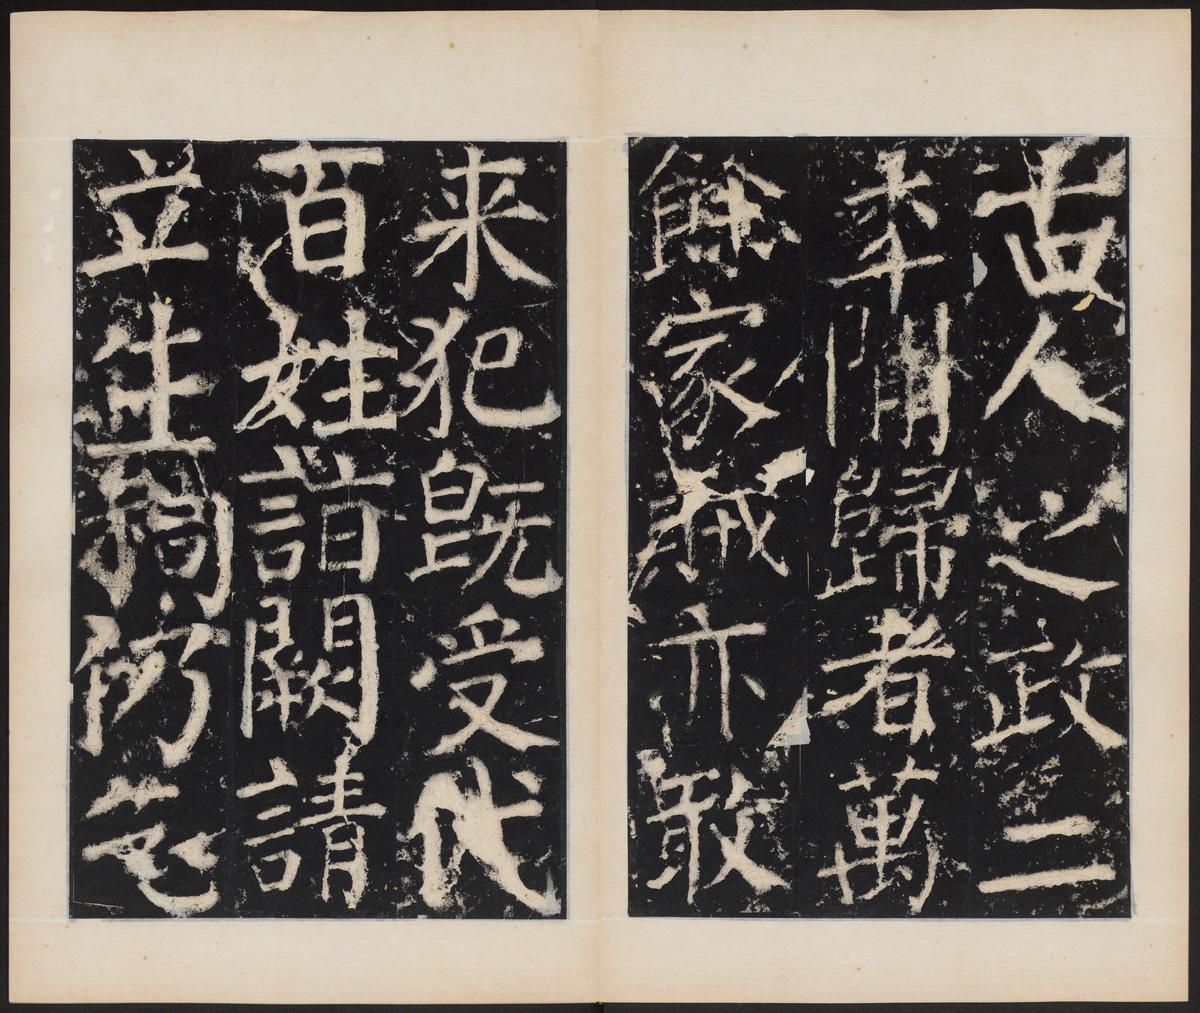 古人之政二
年間歸者萬
餘家賊亦敢
来犯既受代
百姓詣闕請
立生祠仍乞